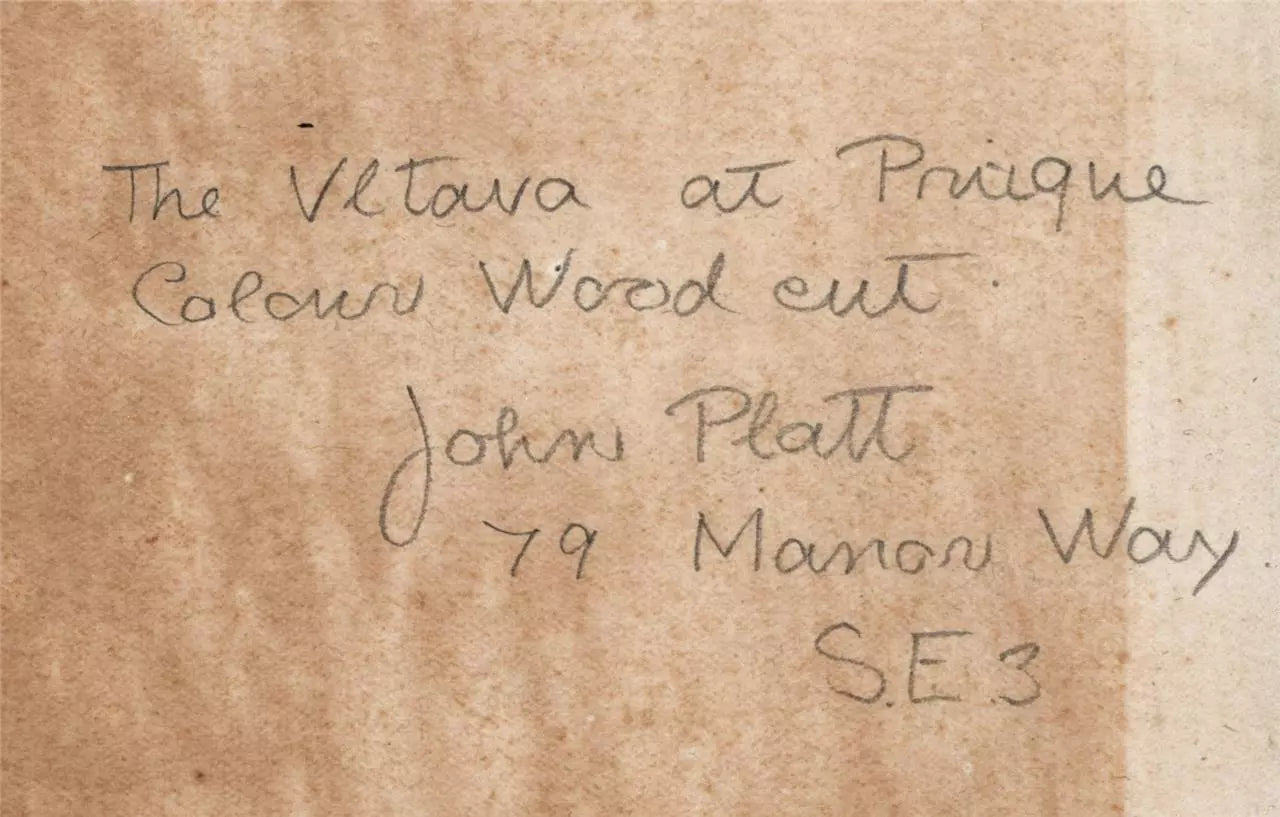 The Vltava at Prague
Colour Wood cut.
John Platt
79 Manor Way
S.E.3